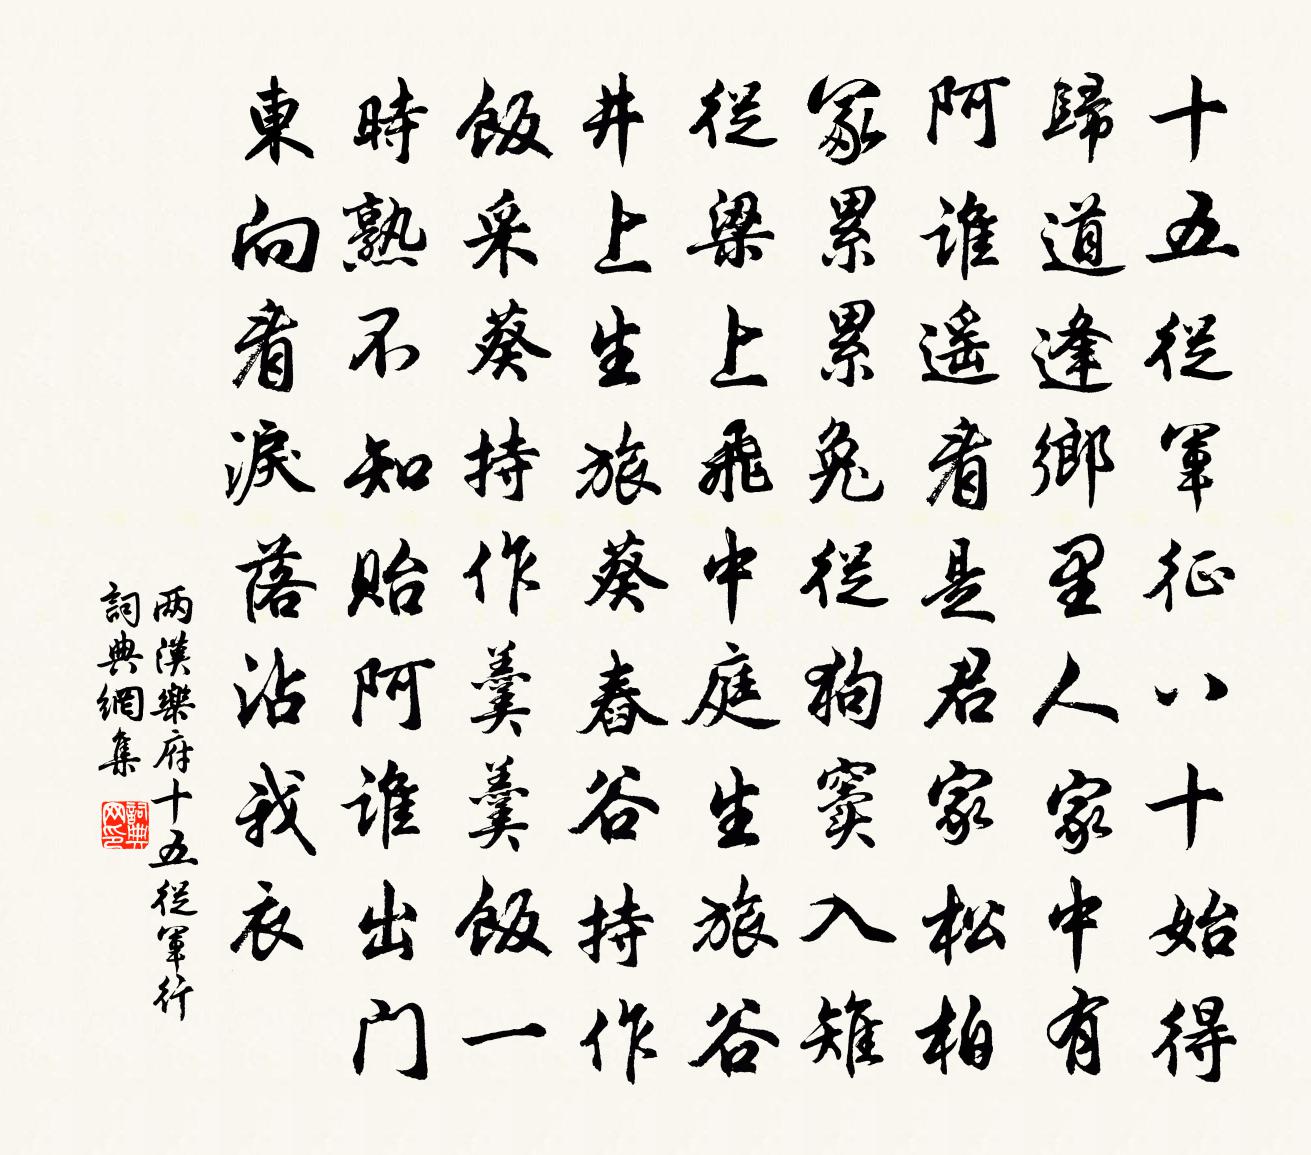 十五從軍征八十始得
歸道逢鄉里人家中有
阿誰遥看是君家松柏
冢累累兔從狗竇入雉
從梁上飛中庭生旅谷
井上生旅葵舂谷持作
飯采葵持作羹羹飯一
時熟不知貽阿誰出门
東向看淚落沾我衣
两漢樂府十五從軍行
詞典網集
詞典网印